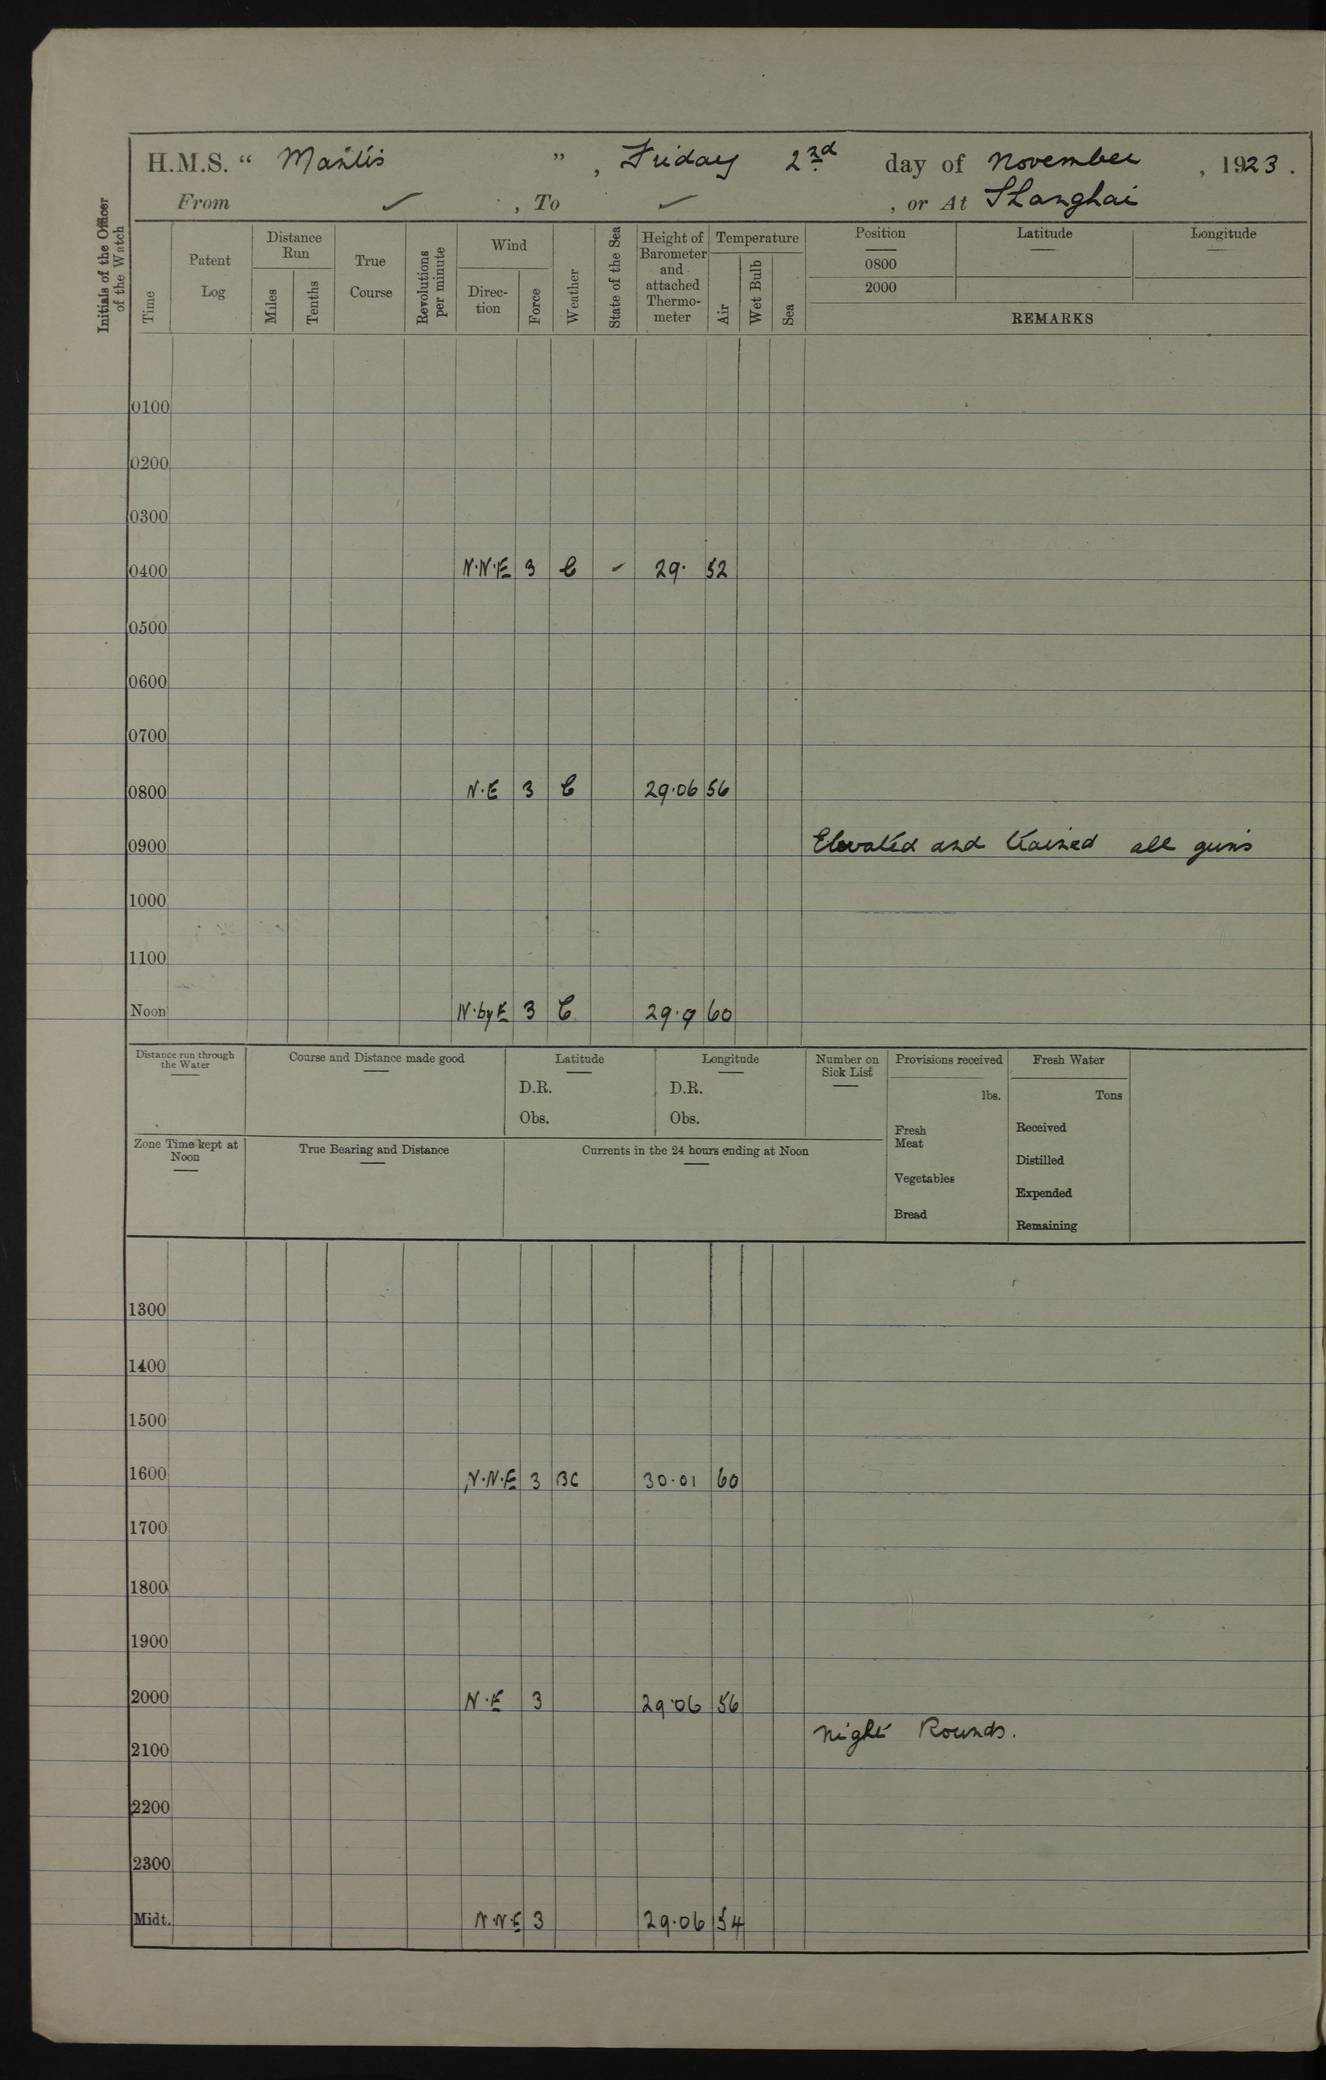 H.M.S. “ Mantis ” , Friday 2nd day of November , 1923 .
From ✓ , To ✓ , or At Shanghai
Initials of the Officer of the Watch
Time
Patent Log
Distance Run
Miles
Tenths
True Course
Revolutions per minute
Wind
Direc-tion
Force
Weather
State of the Sea
Height of Barometer and attached Thermo-meter
Temperature
Air
Wet Bulb
Sea
Position Latitude Longitude
0800
2000
REMARKS
0100
0200
0300
0400 N.N.E 3 C ✓ 29. 52
0500
0600
0700
0800 N.E 3 C 29.06 56
0900 Elevated and trained all guns
1000
1100
Noon N.byE 3 C 29.9 60
Distance run through the Water
Course and Distance made good
Latitude
D.R.
Obs.
Longitude
D.R.
Obs.
Number on Sick List
Provisions received
lbs.
Fresh Meat
Vegetables
Bread
Fresh Water
Tons
Received
Distilled
Expended
Remaining
Zone Time kept at Noon
True Bearing and Distance
Currents in the 24 hours ending at Noon
1300
1400
1500
1600 N.N.E 3 BC 30.01 60
1700
1800
1900
2000 N.E 3 29.06 56
Night Rounds.
2100
2200
2300
Midt. N.N.E 3 29.06 54